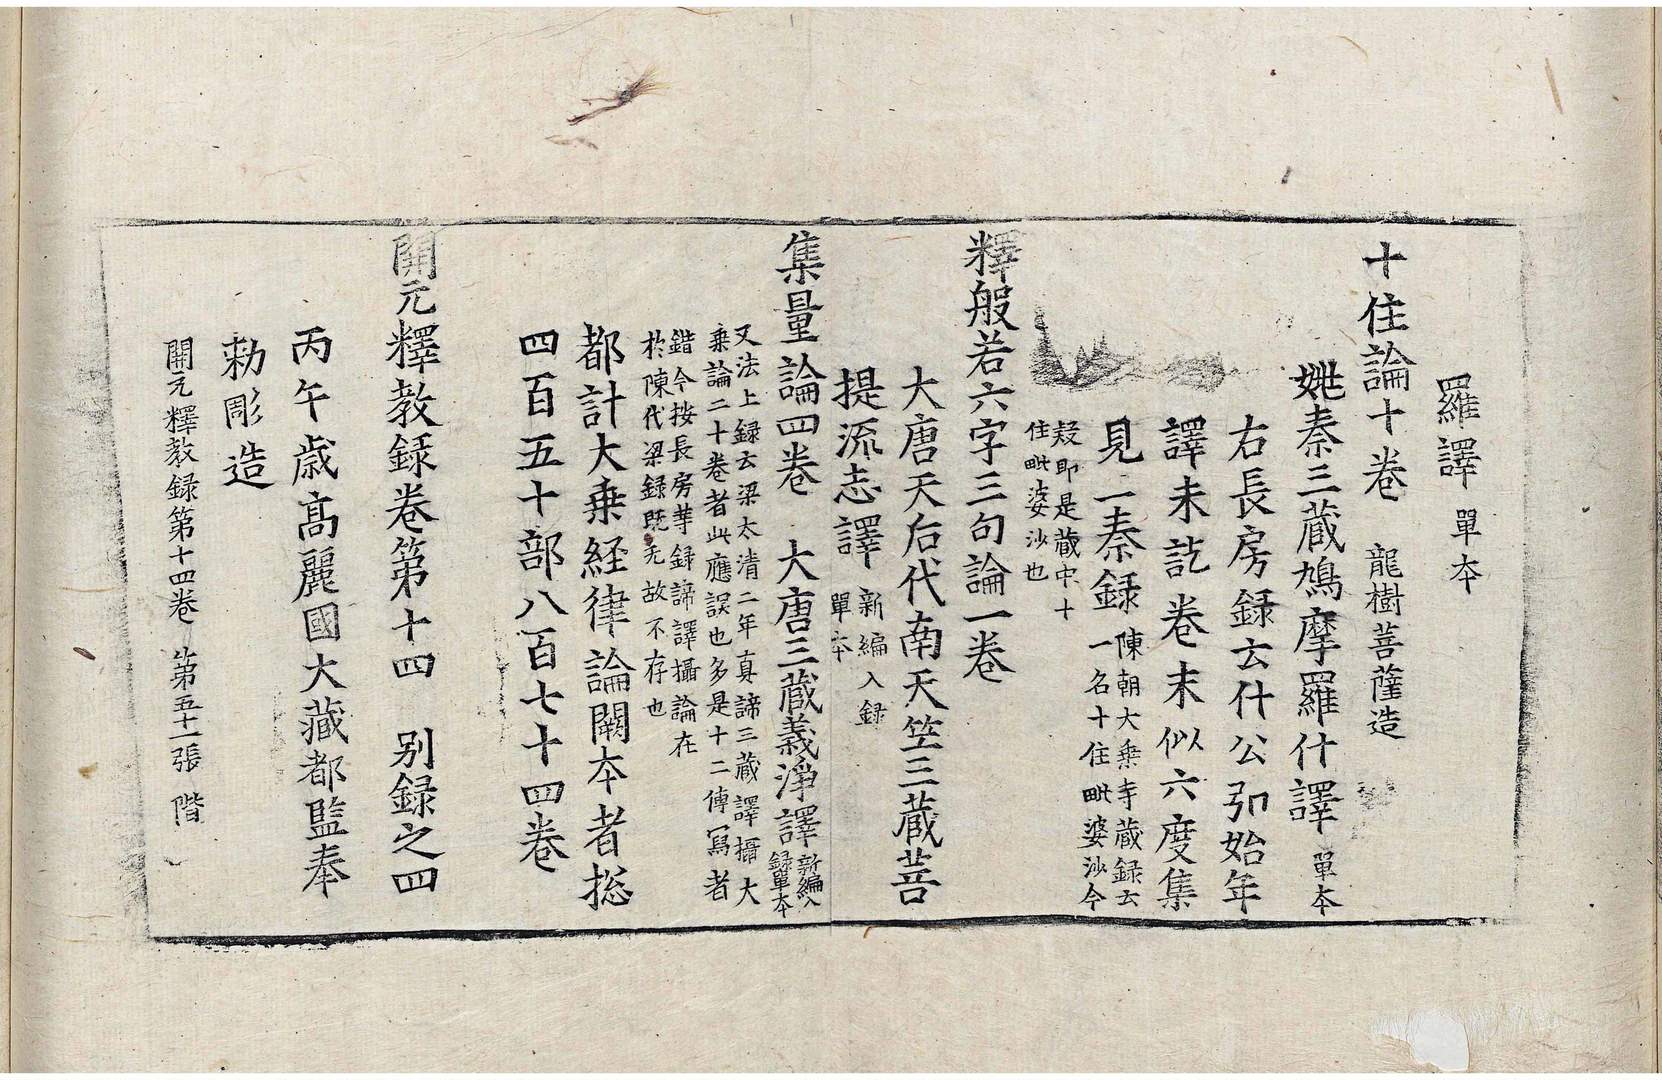 羅譯 單本
十住論十卷 龍樹菩薩造
姚秦三藏鳩摩羅什譯 單本
右長房録云什公弘始年
譯未訖卷末似六度集
見二秦録 陳朝大乗寺藏録云
一名十住毗婆沙今
疑即是藏中十
住毗婆沙也
釋般若六字三句論一卷
大唐天后代南天竺三藏菩
提流志譯 新編入録
單本
集量論四卷 大唐三藏義淨譯 新編入
録單本
又法上録云梁太清二年真諦三藏譯攝大
乗論二十卷者此應誤也多是十二傳寫者
錯今按長房等録諦譯攝論在
於陳代梁録既无故不存也
都計大乗經律論闕本者揔
四百五十部八百七十四卷
開元釋教録卷第十四 別録之四
丙午歲高麗國大藏都監奉
勅彫造
開元釋教録第十四卷 第五十一張 階